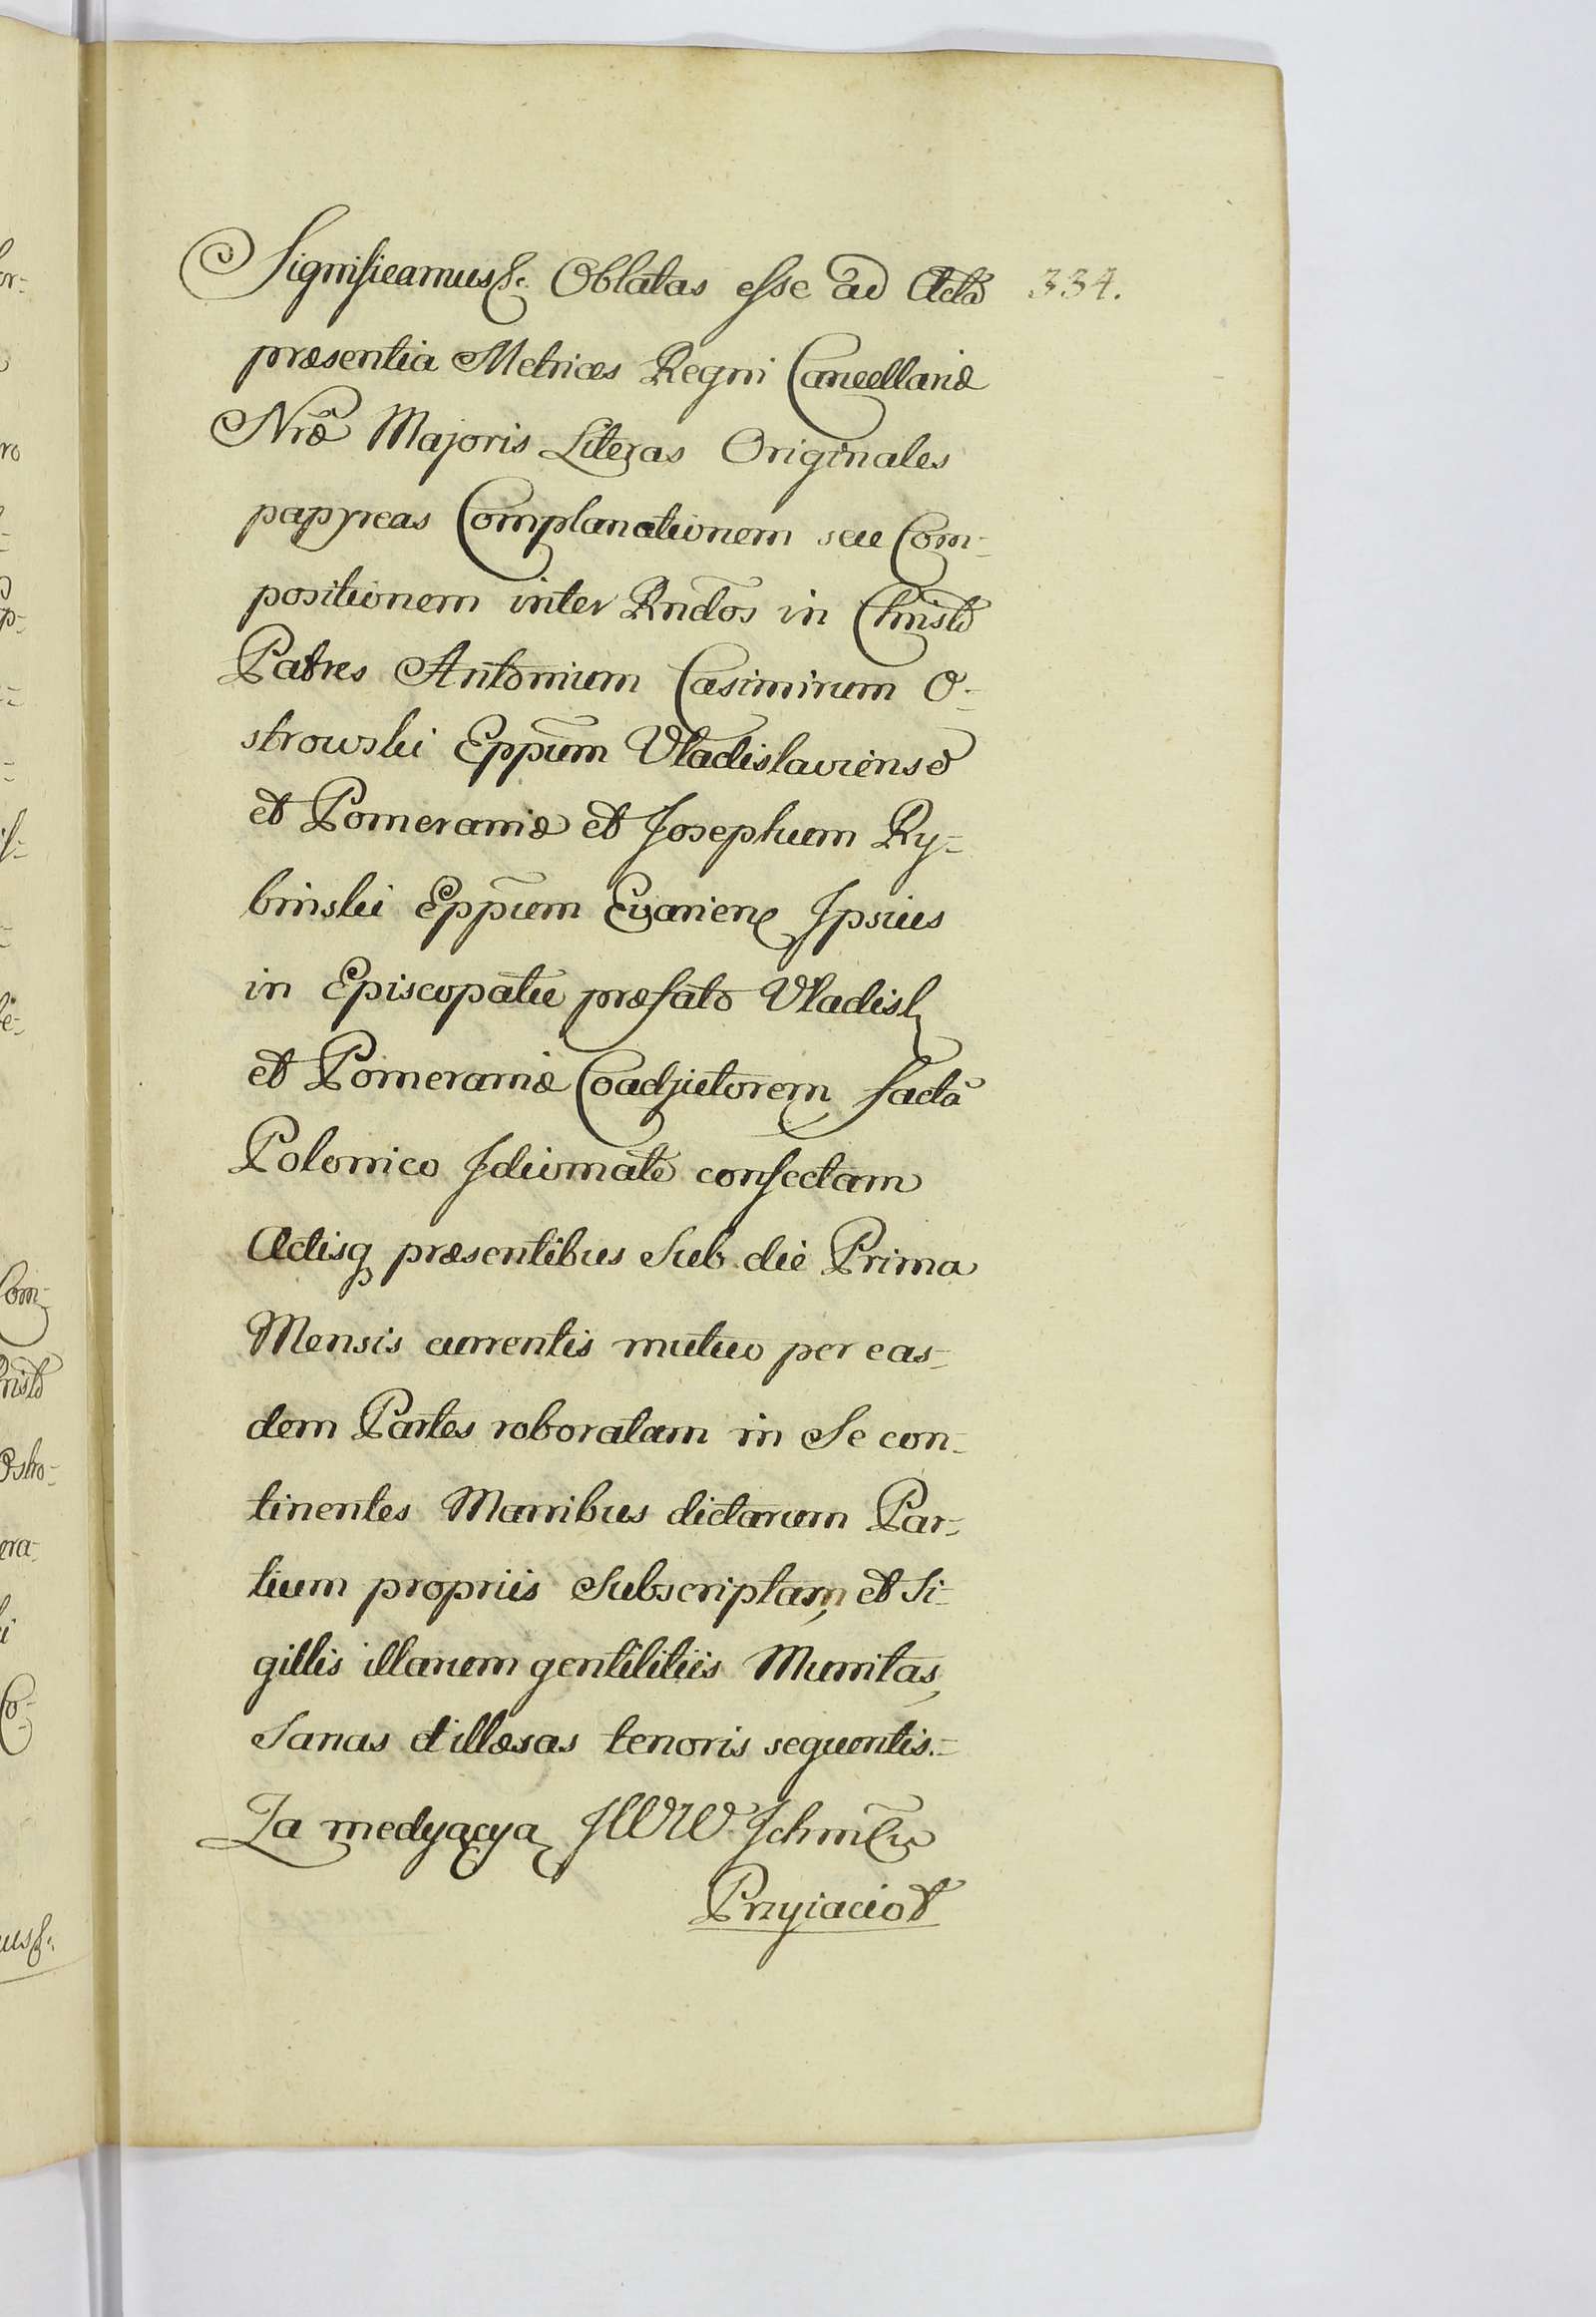 Significamus &c. Oblatas esse ad Acta 334.
præsentia Metrices Regni Cancellariæ
Nrã Majoris Literas Originales
papyreas Complanationem seu Com-
positionem inter Rndõs in Christo
Patres Antonium Casimirum O-
strowski Eppum̃ Vladislaviensẽ
et Pomeraniæ et Josephum Ry-
binski Eppum̃ Ipsius
in Episcopatu præfato Vladisl
et Pomeraniæ Coadjutorem, factã
Polonico Idiomate confectam
Actisq præsentibus sub die Prima
Mensis currentis mutuo per eas-
dem Partes roboratam in Se con-
tinentes Manibus dictarum Par-
tium propriis Subscriptam, et Si-
gillis illarum gentilitiis Munitas,
Sanas et illæsas tenoris sequentis.-
Za medyacyą JWW. Ichmciu
Przyiacioł